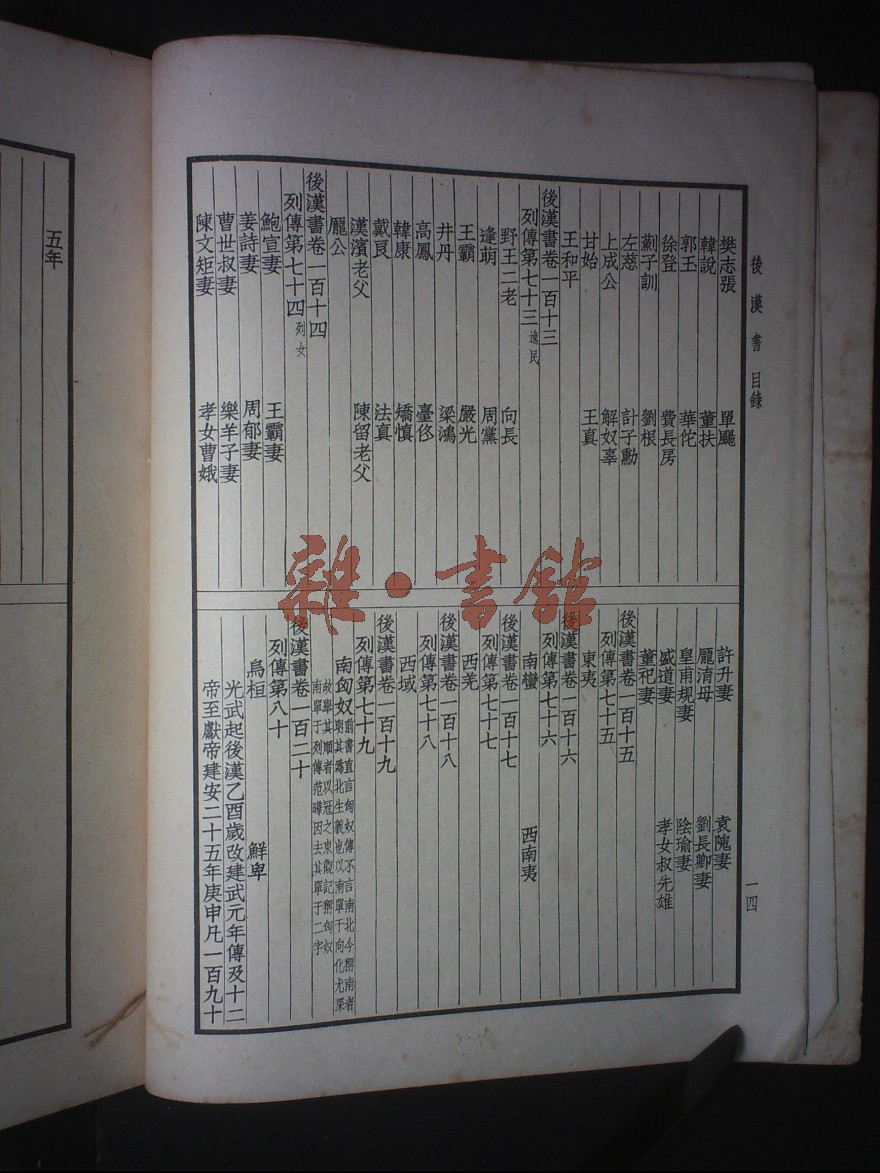 後漢書目錄
一四
樊志張 單颺
韓說 董扶
郭玉 華佗
徐登 費長房
薊子訓 劉根
左慈 計子勳
上成公 解奴辜
甘始 王真
王和平
後漢書卷一百十三
列傳第七十三 逸民
野王二老 向長
逢萌 周黨
王霸 嚴光
井丹 梁鴻
高鳳 臺佟
韓康 矯慎
戴良 法真
漢濱老父 陳留老父
龐公
後漢書卷一百十四
列傳第七十四 列女
鮑宣妻 王霸妻
姜詩妻 周郁妻
曹世叔妻 樂羊子妻
陳文矩妻 孝女曹娥
許升妻 袁隗妻
龐淯母 劉長卿妻
皇甫規妻 陰瑜妻
盛道妻 孝女叔先雄
董祀妻
後漢書卷一百十五
列傳第七十五
東夷
後漢書卷一百十六
列傳第七十六
南蠻 西南夷
後漢書卷一百十七
列傳第七十七
西羌
後漢書卷一百十八
列傳第七十八
西域
後漢書卷一百十九
列傳第七十九
南匈奴 前書直言匈奴傳不言南北今稱南者
明其為北生義也以南單于向化尤深
故舉其順者以冠之東觀記稱匈奴
南單于列傳范曄因去其單于二字
後漢書卷一百二十
列傳第八十
烏桓 鮮卑
光武起後漢乙酉歲改建武元年傳及十二
帝至獻帝建安二十五年庚申凡一百九十
五年
雜·書館